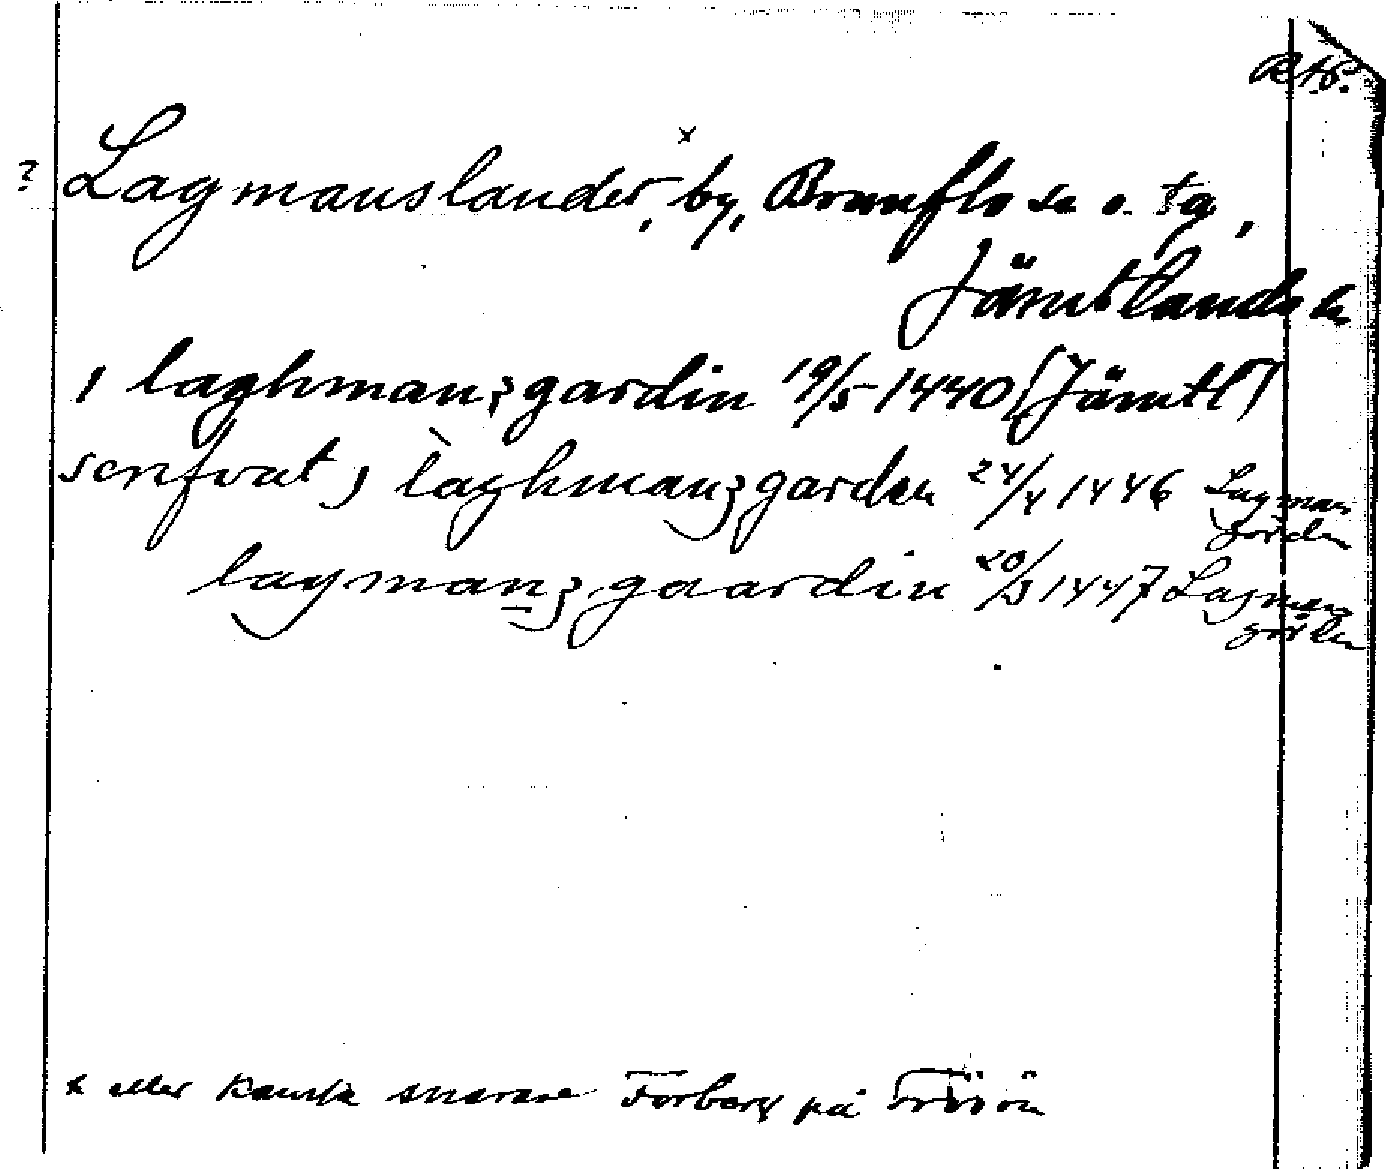 RAP.
? Lagmanslander, by,ˣ Brunflo sn o. tg,
Jämtlands ln
i laghmanʒgardin 19/5 1440 (Jämtl)
scrifvat i laghmanʒgarden 24/4 1446 Lagman
gården
lagmanʒgaardin 20/3 1447 Lagman
gården
x eller kanske snarare Torberg på Frösön